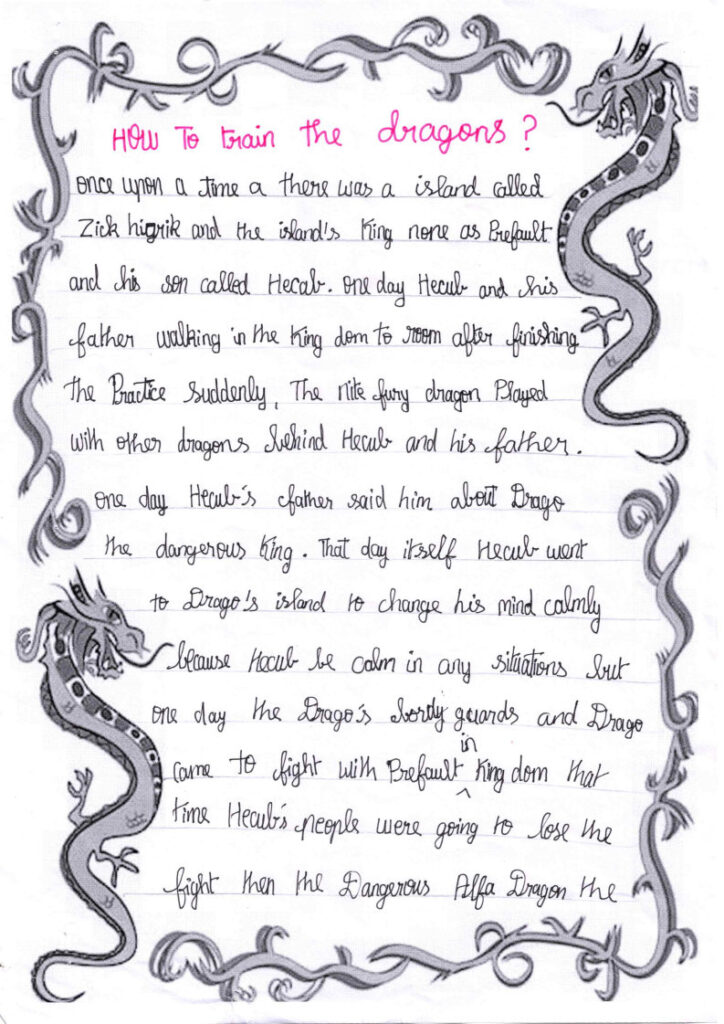 HOW To train the dragons ?
once upon a time a there was a island called
Zick higrik and the island's King none as Prefault
and his son called Hecab. one day Hecub and his
father walking in the King dom to room after finishing
the Practice suddenly, The nite fury dragon Played
with other dragons behind Hecub and his father.
one day Hecub's father said him about Drago
the dangerous King. That day itself Hecub went
to Drago's island to change his mind calmly
because Hecub be calm in any situations but
one day the Drago's bordy guards and Drago
in
came to fight with Prefault King dom that
time Hecub's people were going to lose the
fight then the Dangerous Alfa Dragon the